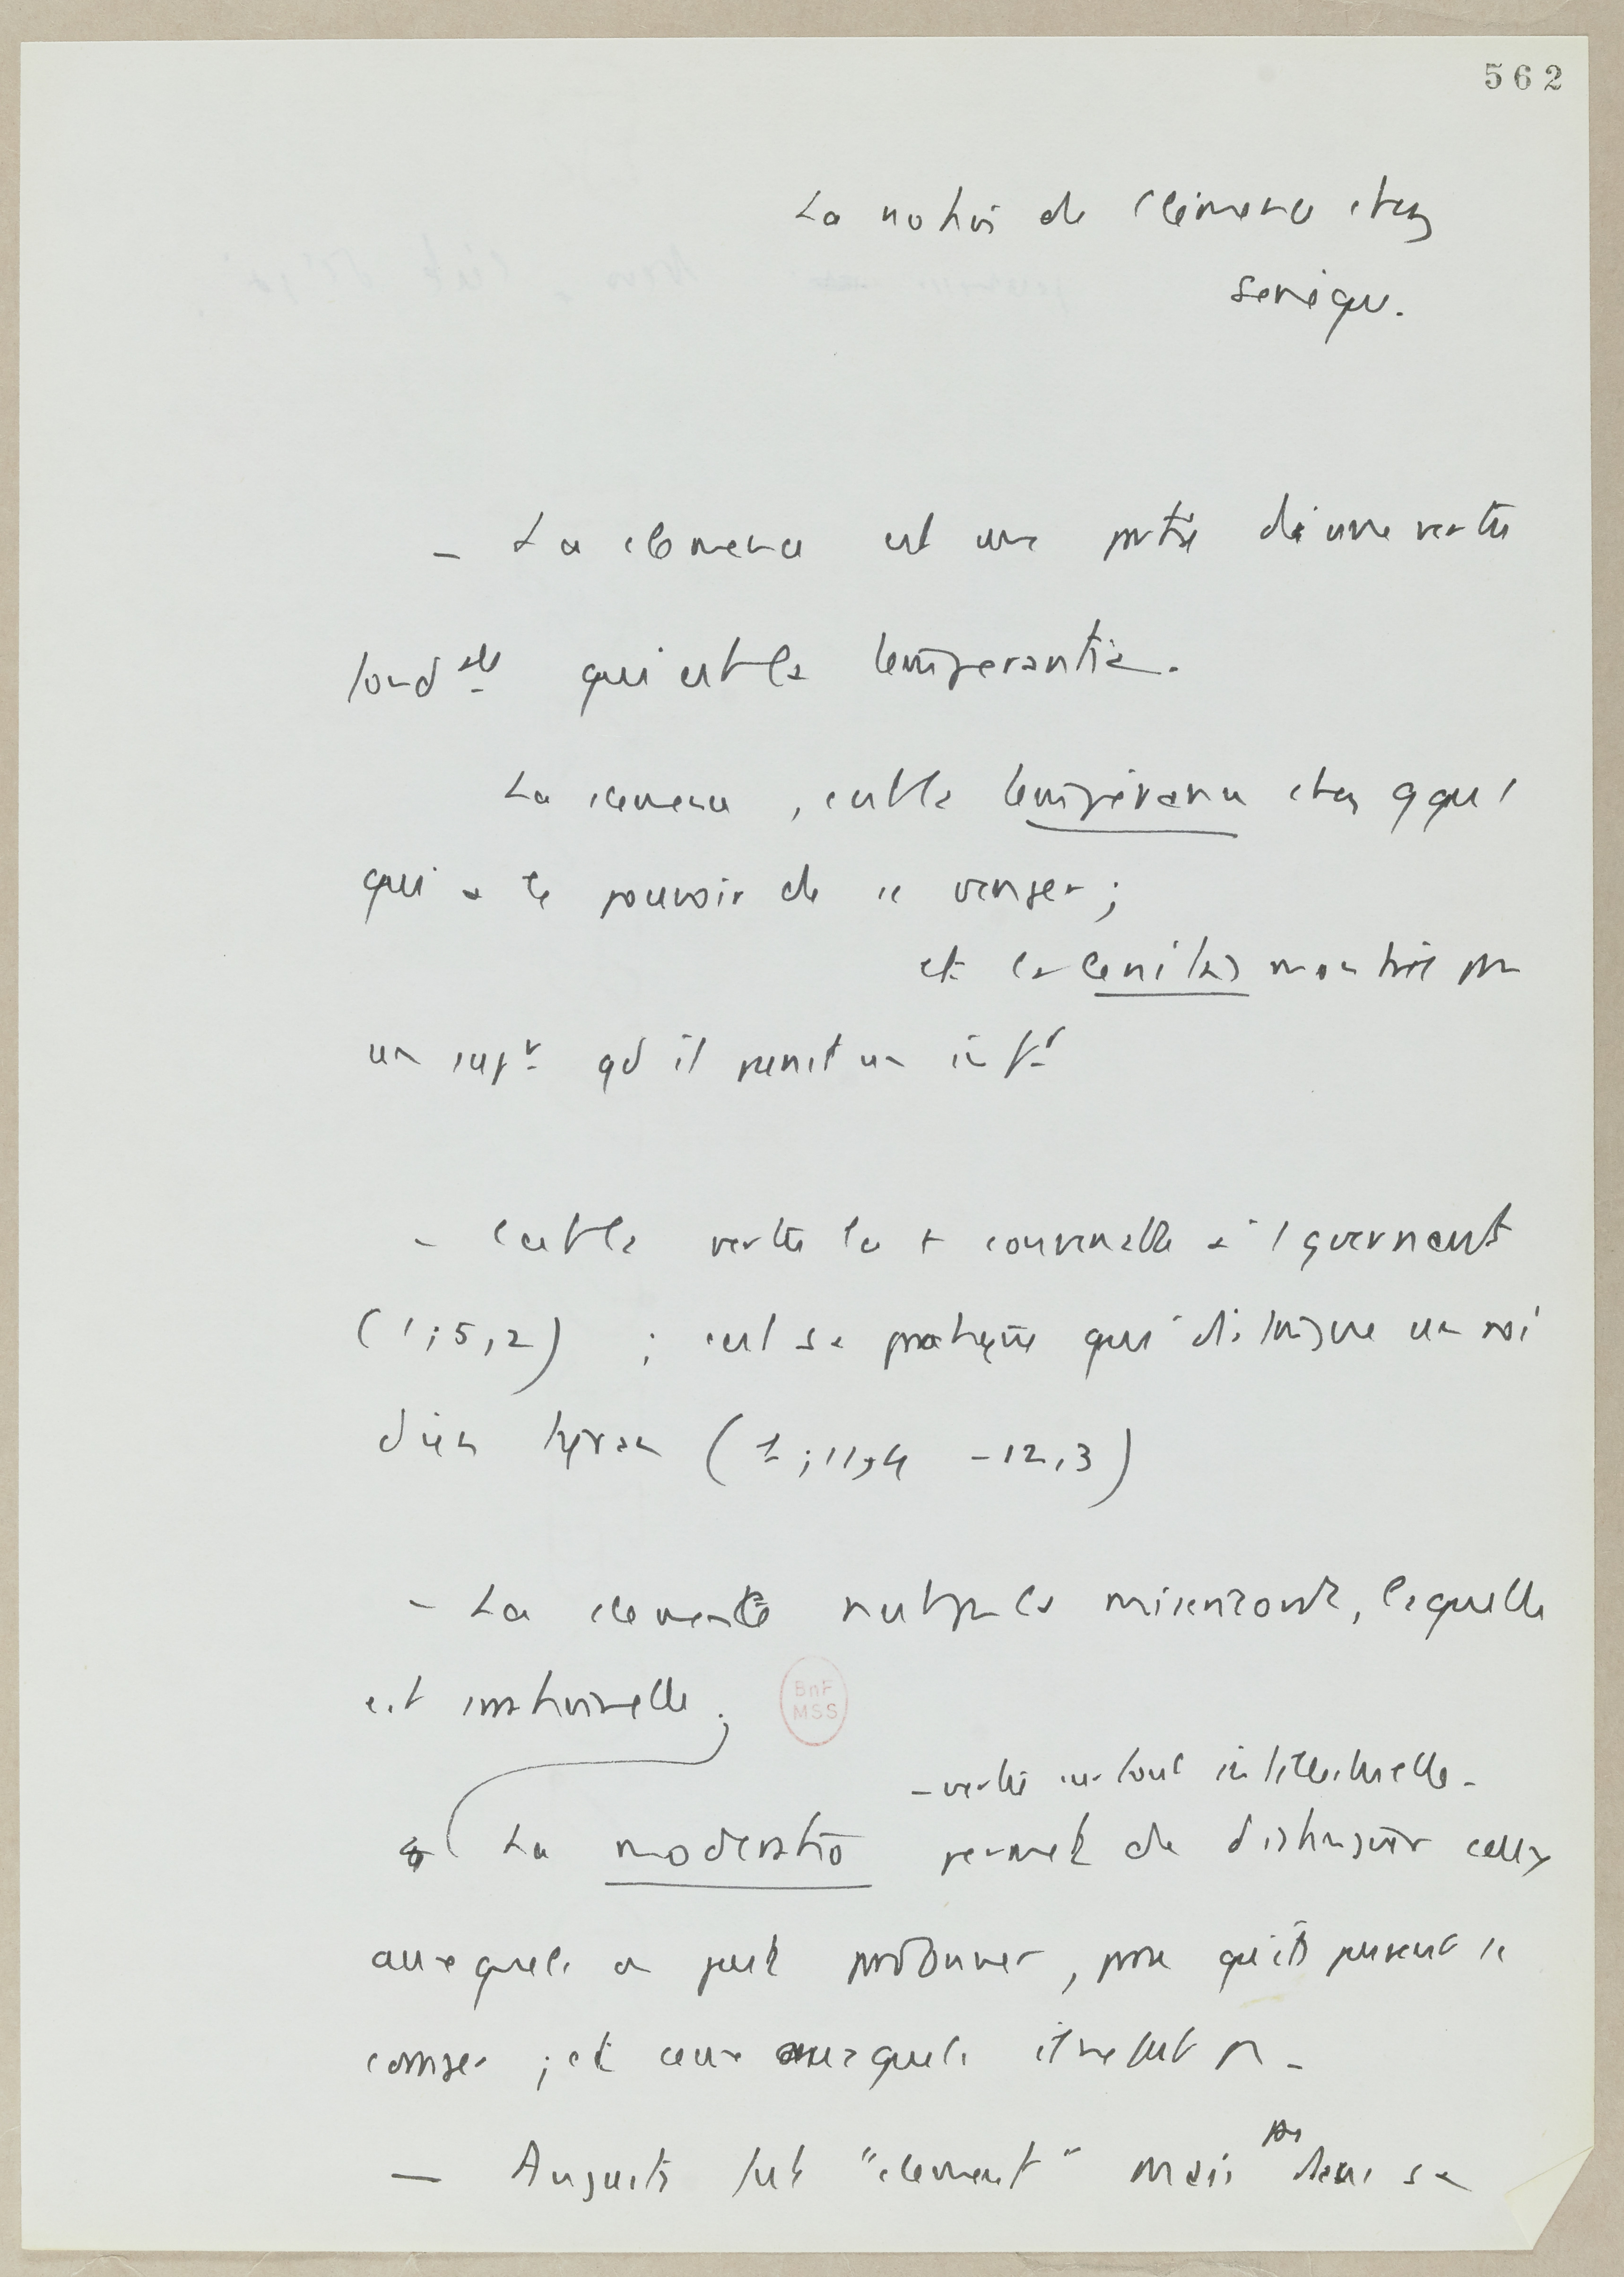 562
La notion de clémence chez
Sénèque.
– La clémence est une partie d'une vertu
fond elle qui est la temperantia.
La clémence, c'est la tempérance chez qqu'1
qui a le pouvoir de se venger ;
et la lenitas montrée par
un supr qd il punit un infr
– C'est la vertu la + convenable à 1 gvernant
(1 ; 5, 2) ; c'est sa pratique qui distingue un roi
d'un tyran (1 ; 11, 4 – 12, 3)
– La clémence n'est pas la miséricorde, laquelle
est irrationnelle ;
– vertu surtout intellectuelle –
La moderatio permet de distinguer ceux
auxquels on peut pardonner, pour qu'ils puissent se
corriger ; et ceux auxquels il ne faut pas –
BnF
MSS
— Auguste fut "clément" mais pas dans sa